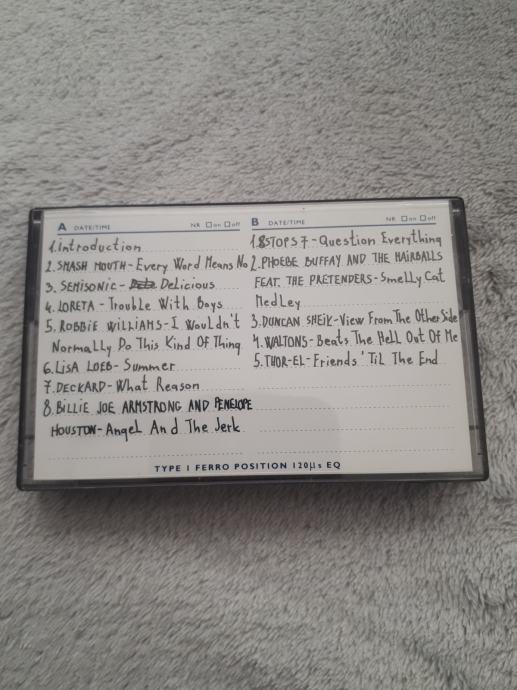 A DATE/TIME NR □on □off
1.introduction
2.SMASH MOUTH-Every Word Means No
3. SEMISONIC- Delicious
4. LORETA- Trouble With Boys
5. ROBBIE WILLIAMS-I Wouldn't
Normally Do This Kind Of Thing
6.LISA LOEB-Summer
7.DECKARD-What Reason
8.BILLIE JOE ARMSTRONG AND PENELOPE
HOUSTON-Angel And The Jerk
B DATE/TIME NR □on □off
1.8STOPS7-Question Everything
2.PHOEBE BUFFAY AND THE HAIRBALLS
FEAT. THE PRETENDERS-Smelly Cat
Medley
3.DUNCAN SHEIK-View From The Other Side
4.WALTONS-Beats The Hell Out Of Me
5.THOR-EL-Friends 'Til The End
TYPE I FERRO POSITION 120µs EQ